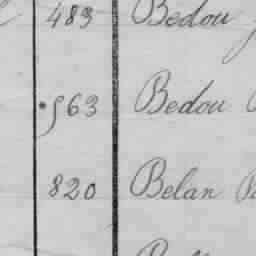 483 Bedou
563 Bedou
820 Belan